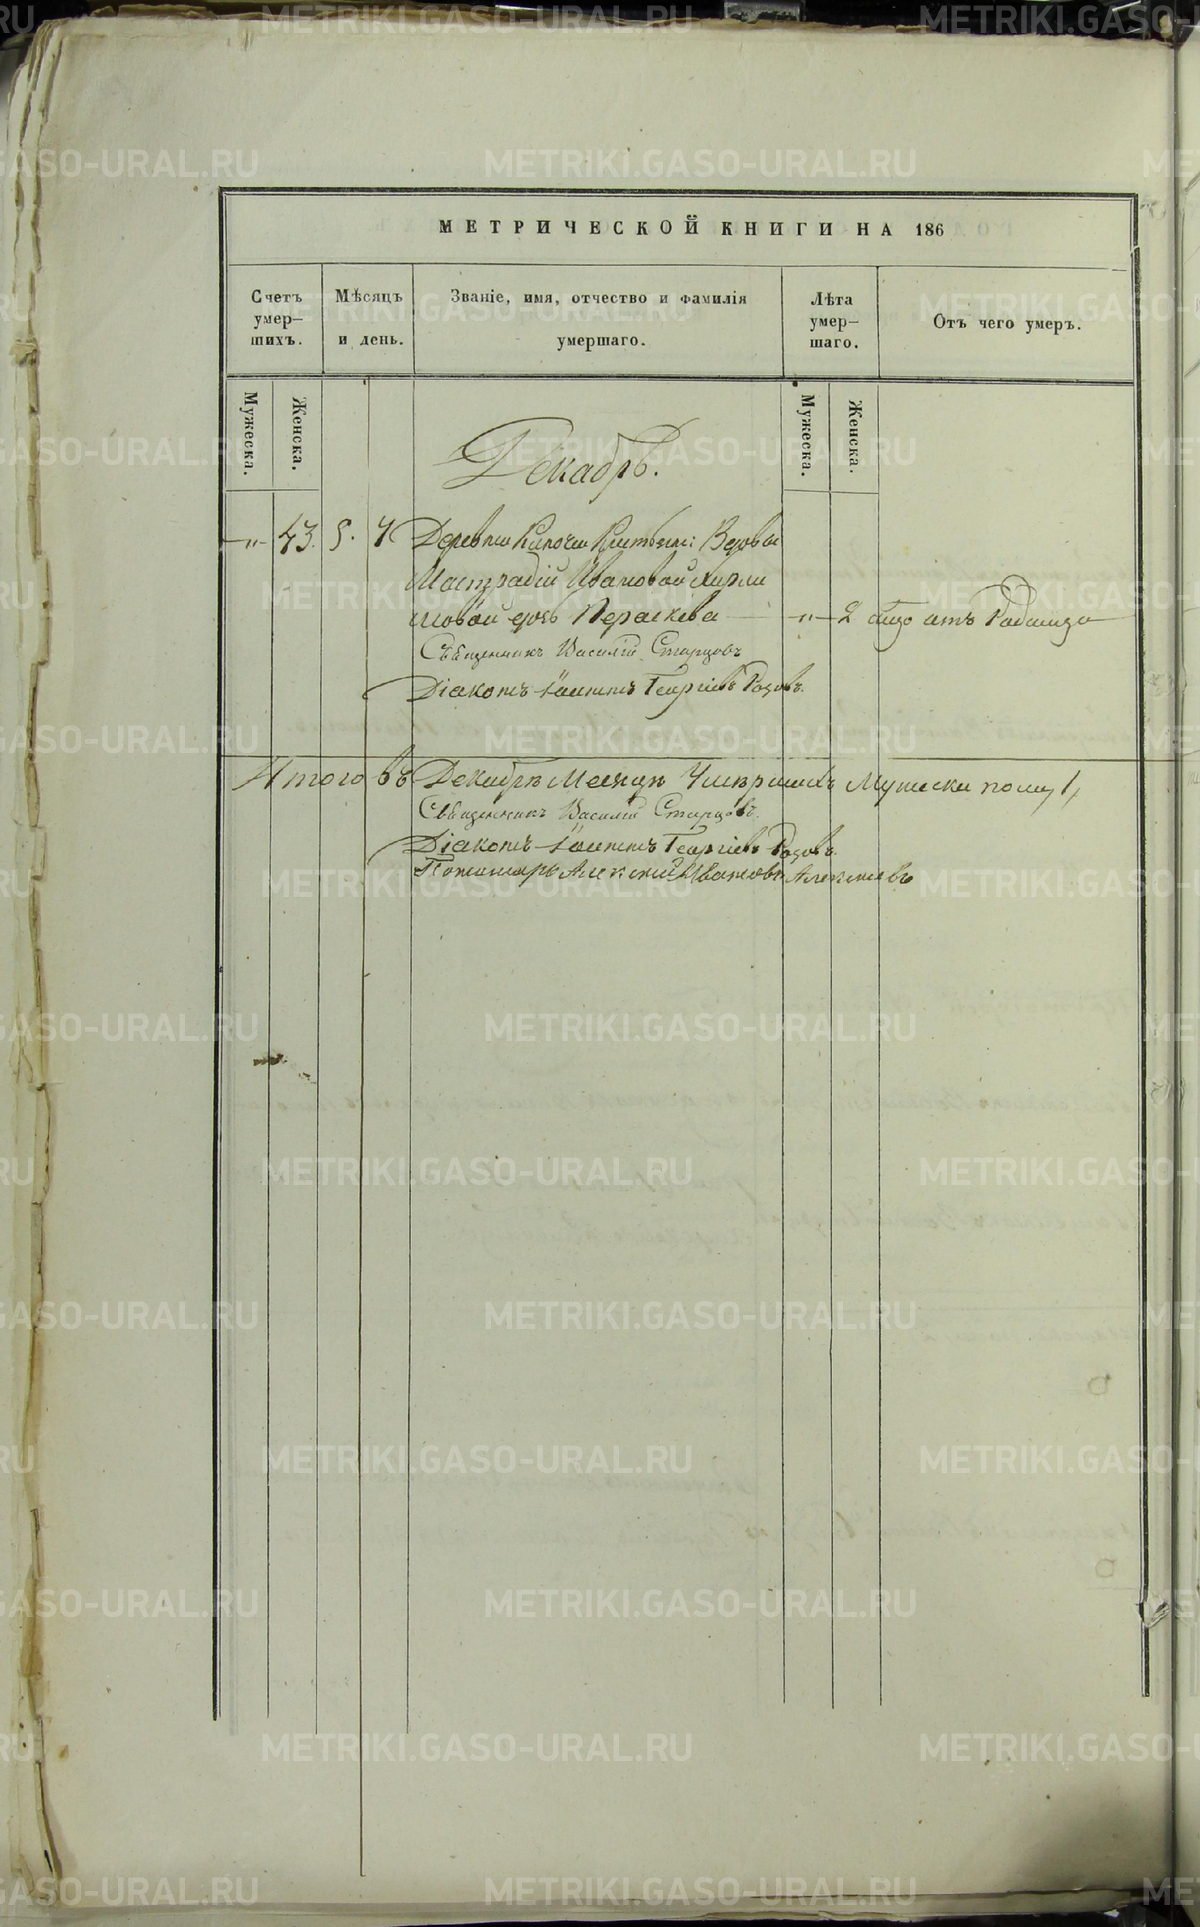 МЕТРИЧЕСКОЙ КНИГИ НА 186
Счетъ умер–шихъ.
Мѣсяцъ и день.
Званіе, имя, отчество и фамилія умершаго.
Лѣта умер–шаго.
Отъ чего умеръ.
Мужеска.
Женска.
Мужеска.
Женска.
Декабрь.
–„– 43. 5. 7 Деревни Вдовы
Ивановой
дочь Параскева –„– 2 отъ Родимца
Священникъ Василій Старцовъ
Діаконъ Іоаннъ Георгіевъ Розовъ.
Итого въ Декабрѣ Месяцѣ Умершихъ Мужеска полу 1,
Священникъ Василій Старцовъ.
Діаконъ Іоаннъ Георгіевъ Розовъ.
Пономарь Алексій Ивановъ Алексѣевъ
METRIKI.GASO-URAL.RU